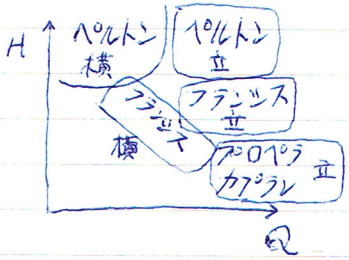 H
ペルトン
横
ペルトン
立
フランシス
横
フランシス
立
プロペラ
カプラン
立
Q